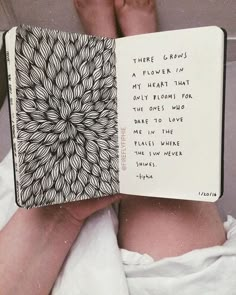 THERE GROWS
A FLOWER IN
MY HEART THAT
ONLY BLOOMS FOR
THE ONES WHO
DARE TO LOVE
ME IN THE
PLACES WHERE
THE SUN NEVER
SHINES.